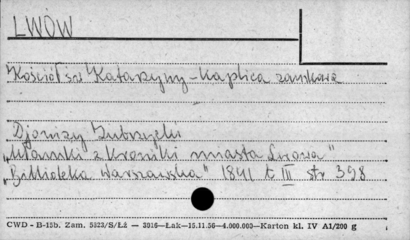 LWÓW
Kościół św Katarzyny - Kaplica zamkowa
Djonizy Zubrzycki
"Ułamki z Kroniki miasta Lwowa"
"Biblioteka Warszawska" 1841 t III str 398
CWD - B-15b. Zam. 5823/S/Łź — 3916—Łak—15.11.56—4.000.000—Karton kl. IV A1/200 g